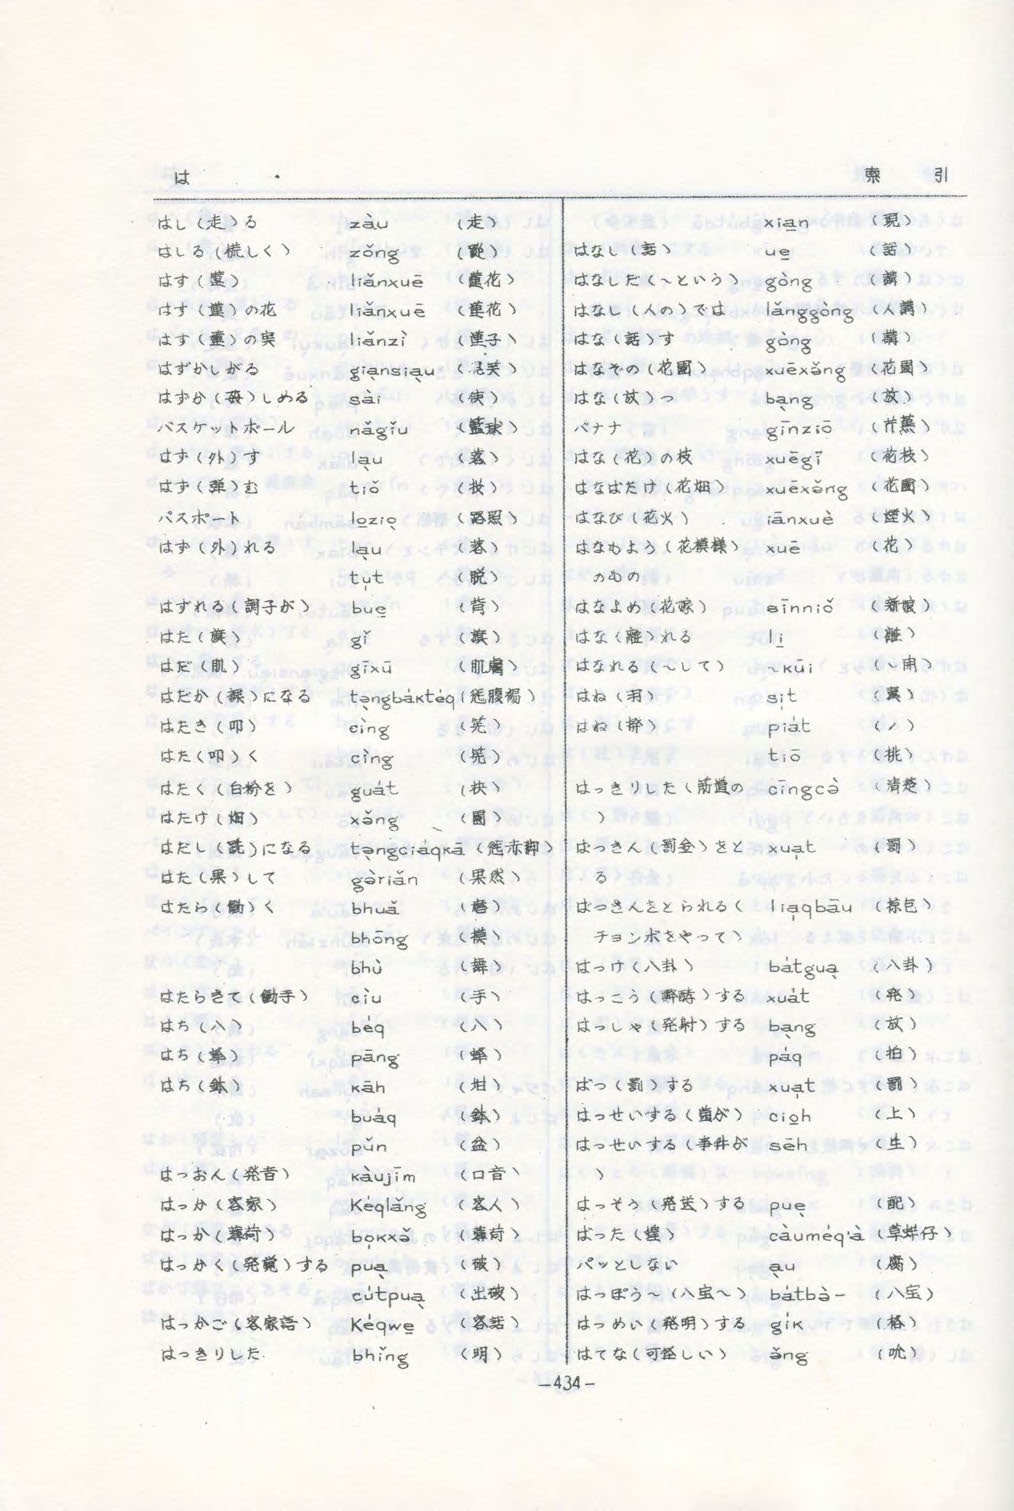 は
索 引
はし(走)る zàu (走)
はしる(慌しく) zǒng
はす(蓮) liǎnxuē (蓮花)
はす(蓮)の花 liǎnxuē (蓮花)
はす(蓮)の実 liǎnzì (蓮子)
はずかしがる giansiau
はずか(辱)しめる sài (使)
バスケットボール nǎgǐu (籃球)
はず(外)す lau (落)
はず(弾)む tiǒ
パスポート lozio (路照)
はず(外)れる lau (落)
tut (脱)
はずれる(調子が) bue (背)
はた(旗) gǐ (旗)
はだ(肌) gīxū (肌膚)
はだか(裸)になる tengbáktéq
はたき(叩) cìng (筅)
はた(叩)く cìng (筅)
はたく(白粉を) guát (抉)
はたけ(畑) xǎng (園)
はだし(跣)になる tengciáqkā
はた(果)して gèriǎn (果然)
はたら(働)く bhuǎ (磨)
bhōng (模)
bhù (舞)
はたらきて(働手) cìu (手)
はち(八) béq (八)
はち(蜂) pāng (蜂)
はち(鉢) kāh (坩)
buáq (鉢)
pǔn (盆)
はつおん(発音) kàujīm (口音)
はっか(客家) Kéqlǎng (客人)
はっか(薄荷) bokxǎ (薄荷)
はっかく(発覚)する pua (破)
cútpua (出破)
はっかご(客家語) Kéqwe (客話)
はっきりした bhǐng (明)
xian (現)
はなし(話) ue (話)
はなしだ(~という) gòng (講)
はなし(人の)では lǎnggòng (人講)
はな(話)す gòng (講)
はなぞの(花園) xuēxǎng (花園)
はな(放)つ bang (放)
バナナ gīnziō (芎蕉)
はな(花)の枝 xuēgī (花枝)
はなばたけ(花畑) xuēxǎng (花園)
はなび(花火) iānxuè (煙火)
はなもよう(花模様) xuē (花)
のもの
はなよめ(花嫁) sīnniǒ (新娘)
はな(離)れる li (離)
はなれる(~して) ~kūi (~開)
はね(羽) sit (翼)
はね(撥) piát (ノ)
tiō (挑)
はっきりした(筋道の cīngcè (清楚)
)
ばっきん(罰金)をと xuat (罰)
る
ばっきんをとられる( liaqbāu
チョンボをやって)
はっけ(八卦) bátgua (八卦)
はっこう(醗酵)する xuát (発)
はっしゃ(発射)する bang (放)
páq (拍)
ばつ(罰)する xuat (罰)
はっせいする(歯が) cioh (上)
はっせいする(事件が sēh (生)
)
はっそう(発送)する pue (配)
ばった(蝗) càuméq'à (草蜢仔)
パッとしない au (腐)
はっぽう~(八宝~) bátbà- (八宝)
はつめい(発明)する gík (格)
はてな(可怪しい) ǎng
-434-